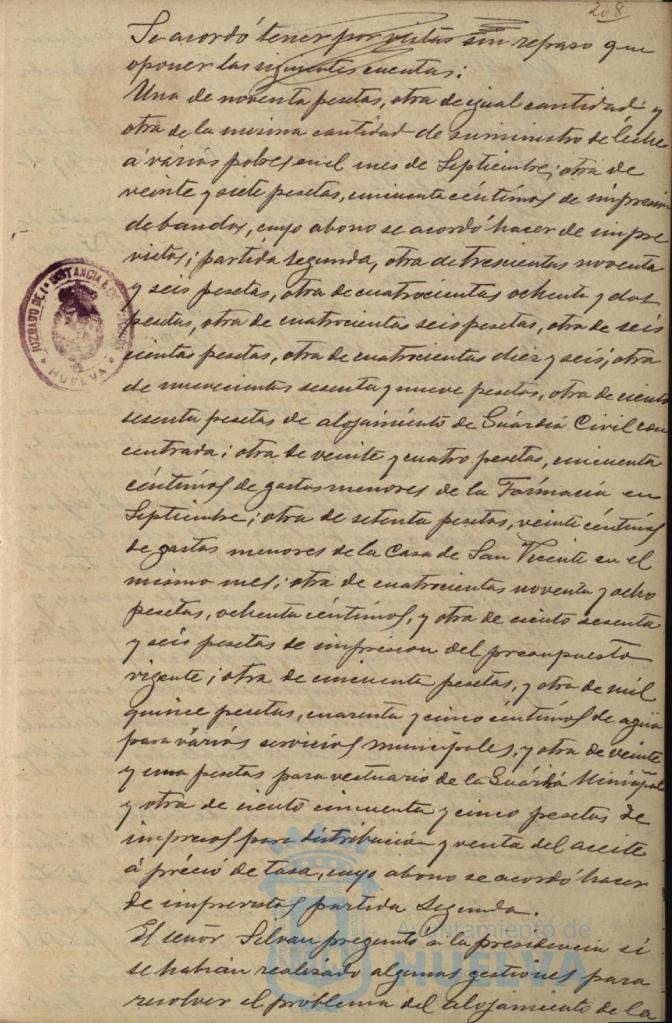 208
Se acordó tener por vistas sin reparo que
oponer las siguientes cuentas:
Una de noventa pesetas, otra de igual cantidad y
otra de la misma cantidad de suministro de leche
á varios pobres en el mes de Septiembre; otra de
veinte y siete pesetas, cincuenta céntimos de impresion
de bandos, cuyo abono se acordó hacer de impre
vistos; partida segunda, otra de trescientas noventa
y seis pesetas, otra de cuatrocientas ochenta y dos
pesetas, otra de cuatrocientas seis pesetas, otra de seis
cientas pesetas, otra de cuatrocientas diez y seis; otra
de nuevecientas sesenta y nueve pesetas, otra de ciento
sesenta pesetas de alojamiento de Guardia Civil con
centrada; otra de veinte y cuatro pesetas, cincuenta
céntimos de gastos menores de la Farmacia en
Septiembre; otra de setenta pesetas, veinte céntimos
de gastos menores de la Casa de San Vicente en el
mismo mes; otra de cuatrocientas noventa y ocho
pesetas, ochenta céntimos, y otra de ciento sesenta
y seis pesetas de impresion del presupuesto
vigente; otra de cincuenta pesetas, y otra de mil
quince pesetas, cuarenta y cinco céntimos de agua
para varios servicios municipales, y otra de veinte
y una pesetas para vestuario de la Guardia Municipal
y otra de ciento cincuenta y cinco pesetas de
impresos para distribución y venta del aceite
á precio de tasa, cuyo abono se acordó hacer
de imprevistos partida segunda.
El señor Silvan preguntó á la presidencia si
se habian realizado algunas gestiones para
resolver el problema del alojamiento de la
JUZGADO DE 1ª INSTANCIA E
HUELVA
Ayuntamiento de
HUELVA